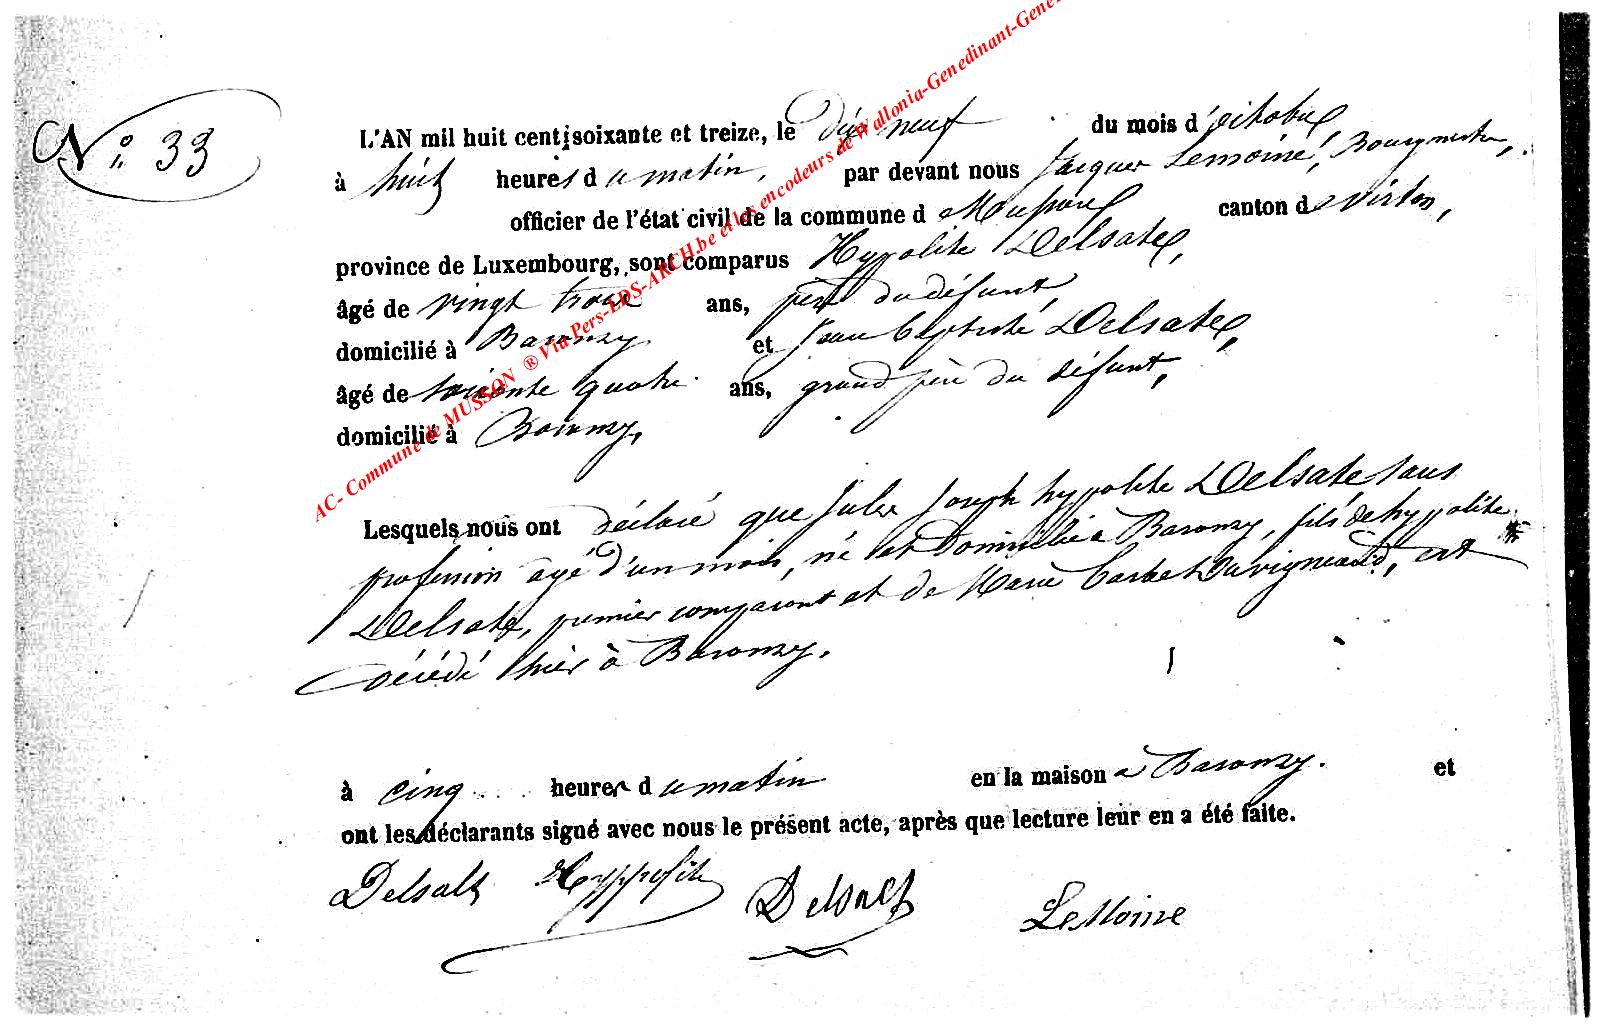 AC- Commune de MUSSON ® Via Pers-EDS-ARCH.be et les encodeurs de Wallonia-Genedinant-Gene
N° 33
L'AN mil huit cent soixante et treize, le dix neuf du mois d'octobre
à huit heures du matin, par devant nous Jacques Lemoine, Bourgmestre,
officier de l'état civil de la commune de Musson canton de Virton,
province de Luxembourg, sont comparus Hypolite Delsate,
âgé de vingt trois ans, père du défunt,
domicilié à Baronzy et Jean Baptiste Delsate,
âgé de soixante quatre ans, grand père du défunt,
domicilié à Baronzy,
Lesquels nous ont déclaré que Jules Joseph hyppolite Delsate sans
profession agé d'un mois, né et domicilié à Baronzy, fils de hyppolite
Delsate, premier comparant et de Marie Barbe Duvigneaud, est
décédé hier à Baronzy,
à cinq heures du matin en la maison à Baronzy. et
ont les déclarants signé avec nous le présent acte, après que lecture leur en a été faite.
Delsate Hyppolite Delsate LeMoine